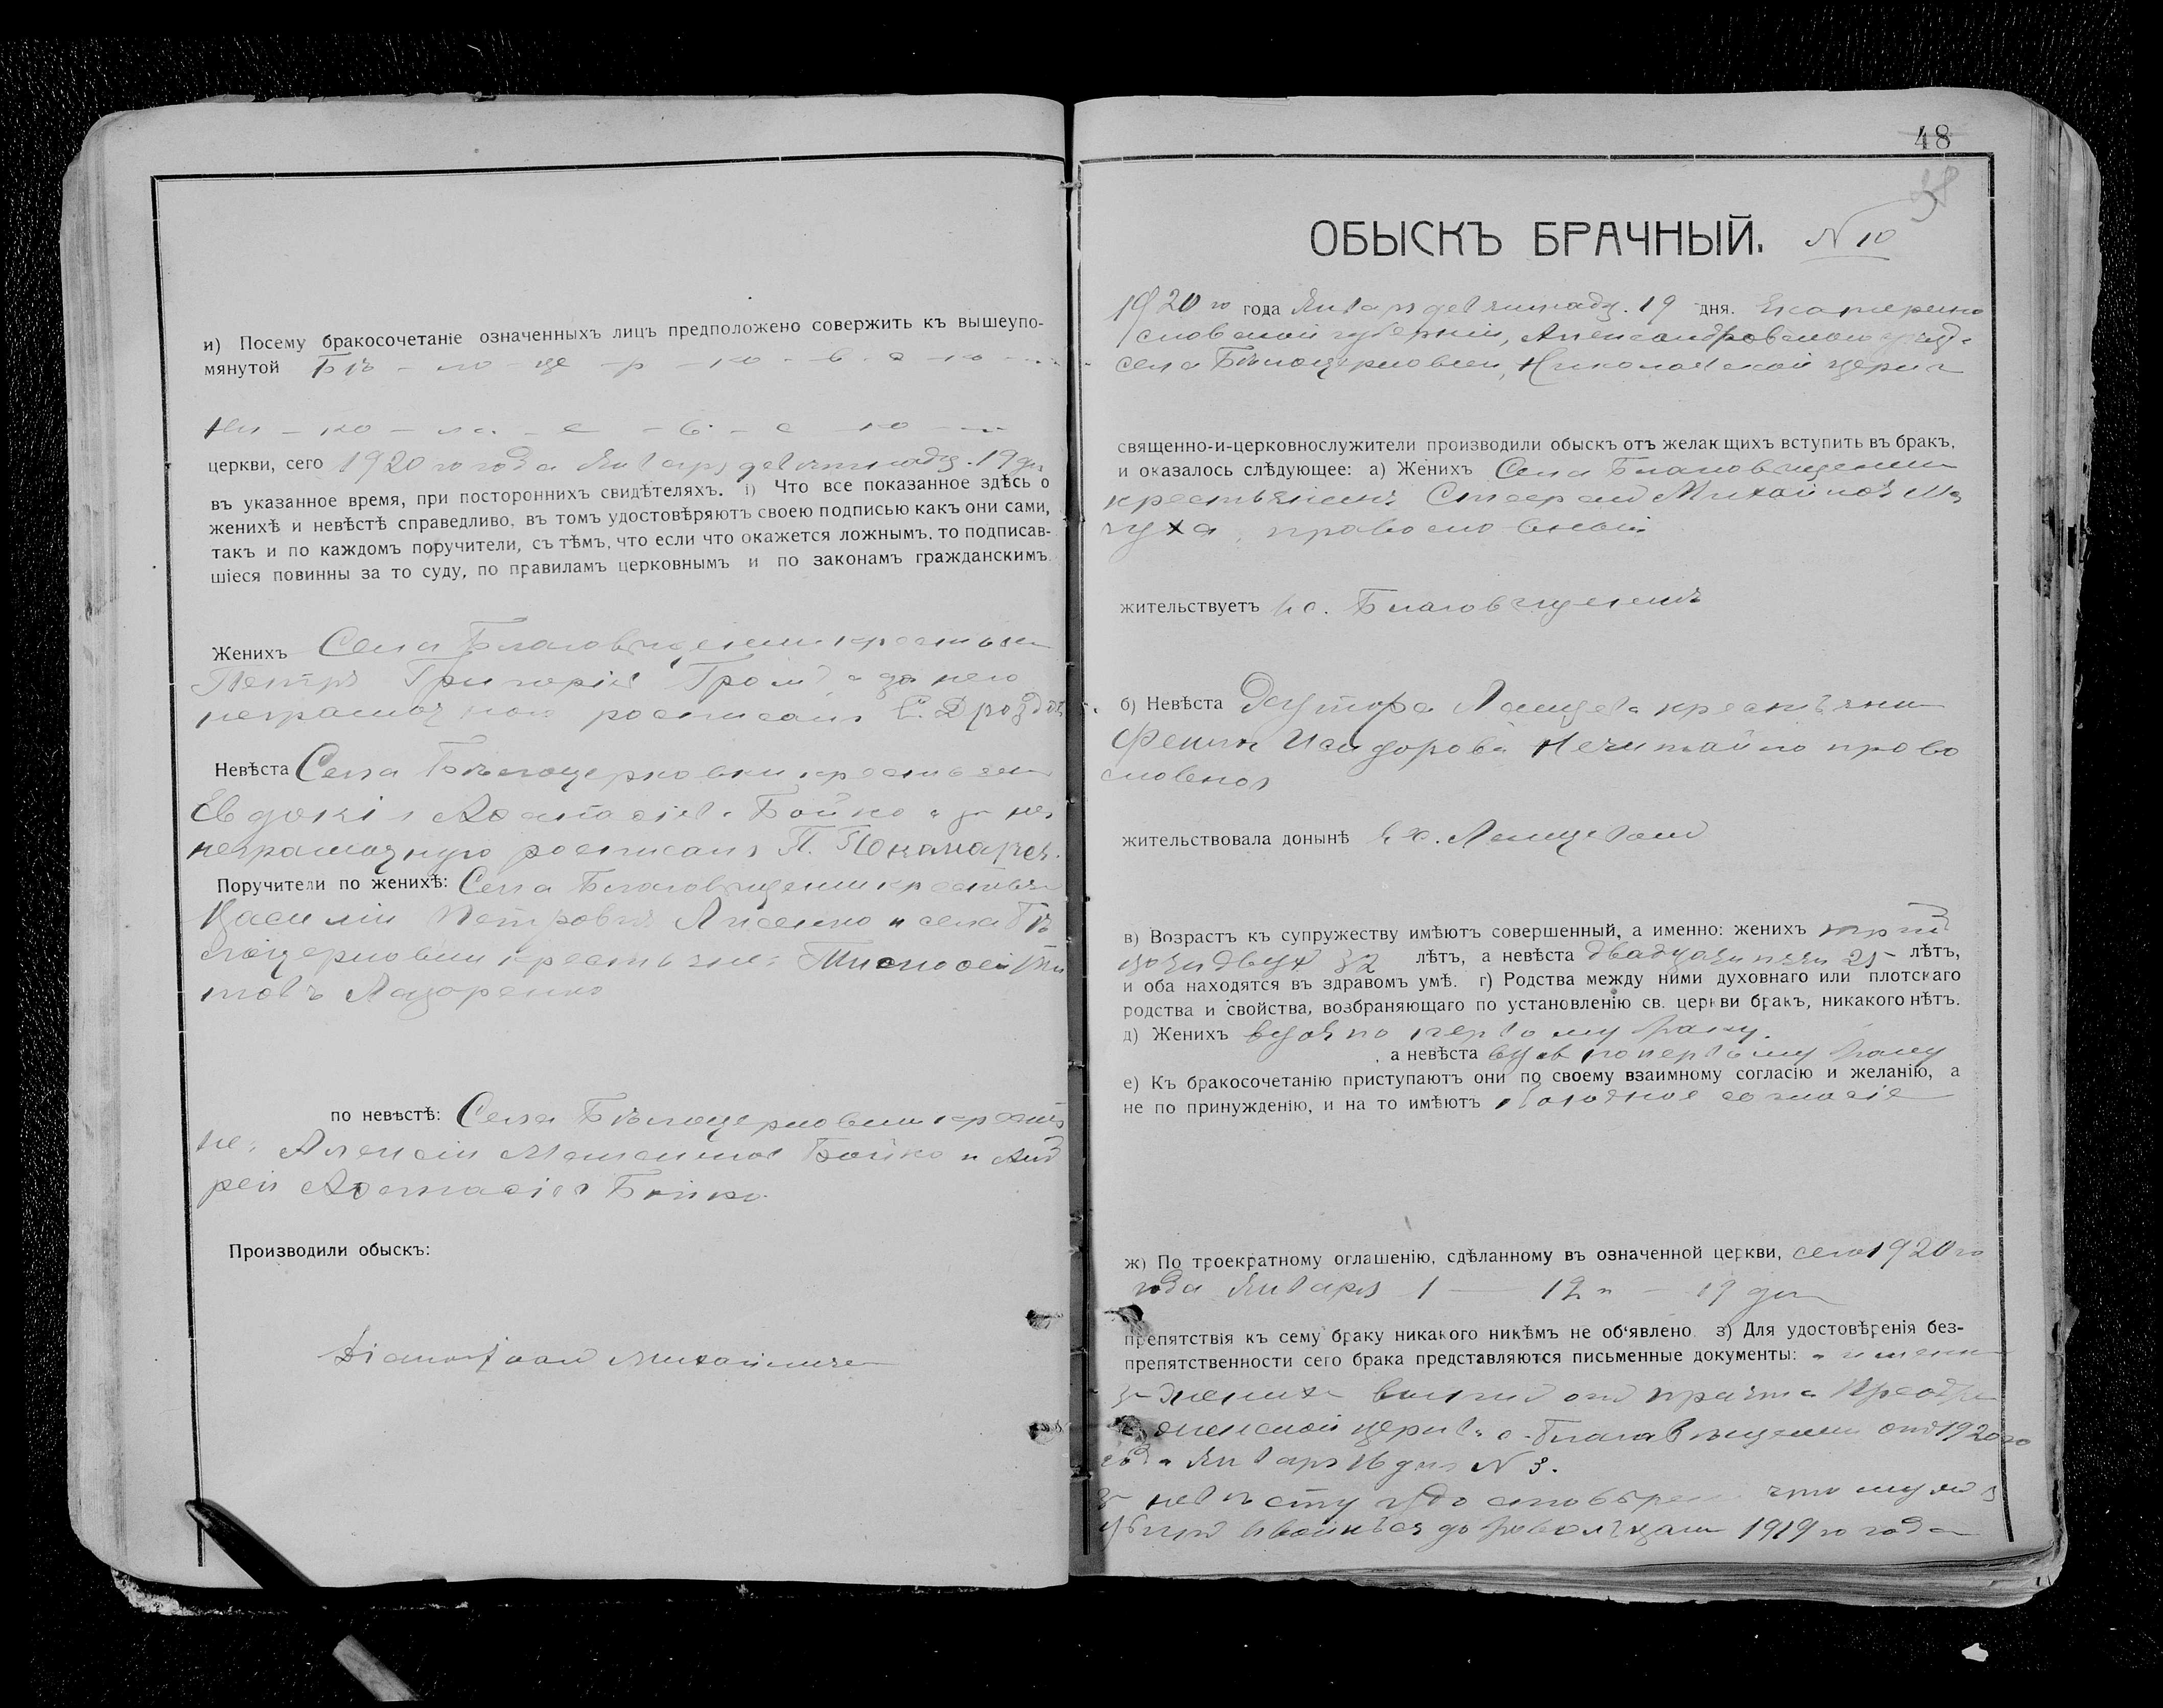 и) Посему бракосочетаніе означенныхъ лицъ предположено совержить къ вышеупо-
мянутой Бѣ - ло - це - р - ко - в - с - ко - -
Ни - ко - ла - е - в - с - ко - -
церкви, сего 1920 го года Января девятнадц. 19 дн
въ указанное время, при постороннихъ свидѣтеляхъ. і) Что все показанное здѣсь о
женихѣ и невѣстѣ справедливо, въ томъ удостовѣряютъ своею подписью какъ они сами,
такъ и по каждомъ поручители, съ тѣмъ, что если что окажется ложнымъ, то подписав-
шіеся повинны за то суду, по правиламъ церковнымъ и по законамъ гражданскимъ.
Женихъ Села Благовѣщенки крестьян
Петръ Григоріев Гром а за него
неграмотного росписался С. Дрозд
Невѣста Села Бѣлоцерковки крестьян
Евдокія Афанасіев. Бойко а за нея
неграмотную росписался П.
Поручители по женихѣ: Села Благовѣщенки крестьян
Василій Петровичъ Лисенко и села Бѣ
лоцерковки крестьяне: Тимофей
товъ Лазаренко
по невѣстѣ: Села Бѣлоцерковки крестья
не: Алексій Бойко и Анд
рей Афанасіев Бойко
Производили обыскъ:
Михайличе
48
38
ОБЫСКЪ БРАЧНЫЙ. N 10
1920 го года Января девятнадц. 19 дня. Екатерино
славской губерніи, Александровского уѣзд.
села Бѣлоцерковки, Николаевской церкв
священно-и-церковнослужители производили обыскъ отъ желающихъ вступить въ бракъ,
и оказалось слѣдующее: а) Женихъ Села Благовѣщенки
крестьянинъ Михайловъ Ма
чуха, православный
жительствуетъ въ с. Благовѣщенкѣ
б) Невѣста Хутора Ланцева крестьянка
Исидорова Нечитайло право
славная
жительствовала донынѣ в х. Ланцевом
в) Возрастъ къ супружеству имѣютъ совершенный, а именно: женихъ трид
цати двух 32 лѣтъ, а невѣста двадцати пяти 25 лѣтъ,
и оба находятся въ здравомъ умѣ. г) Родства между ними духовнаго или плотскаго
родства и свойства, возбраняющаго по установленію св. церкви бракъ, никакого нѣтъ.
д) Женихъ вдов по первому браку.
а невѣста вдов по первому браку
е) Къ бракосочетанію приступаютъ они по своему взаимному согласію и желанію, а
не по принужденію, и на то имѣютъ согласіе
ж) По троекратному оглашенію, сдѣланному въ означенной церкви, сего 1920 го
года Января 1 — 12 и — 19 дня
препятствія къ сему браку никакого никѣмъ не об'явлено. з) Для удостовѣренія без-
препятственности сего брака представляются письменные документы: а именно
за жениха от причта Преобра
женской церкви с. Благовѣщенки от 1920 го
года Января 16 дня N 3.
за невѣсту удостовѣрен что муж я
убит 1919 го года